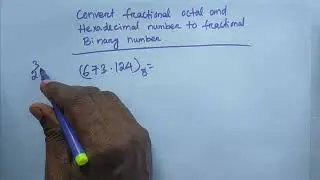 Convert fractional octal and
Hexadecimal number to fractional
Binary number
3
2 (673.124)8=